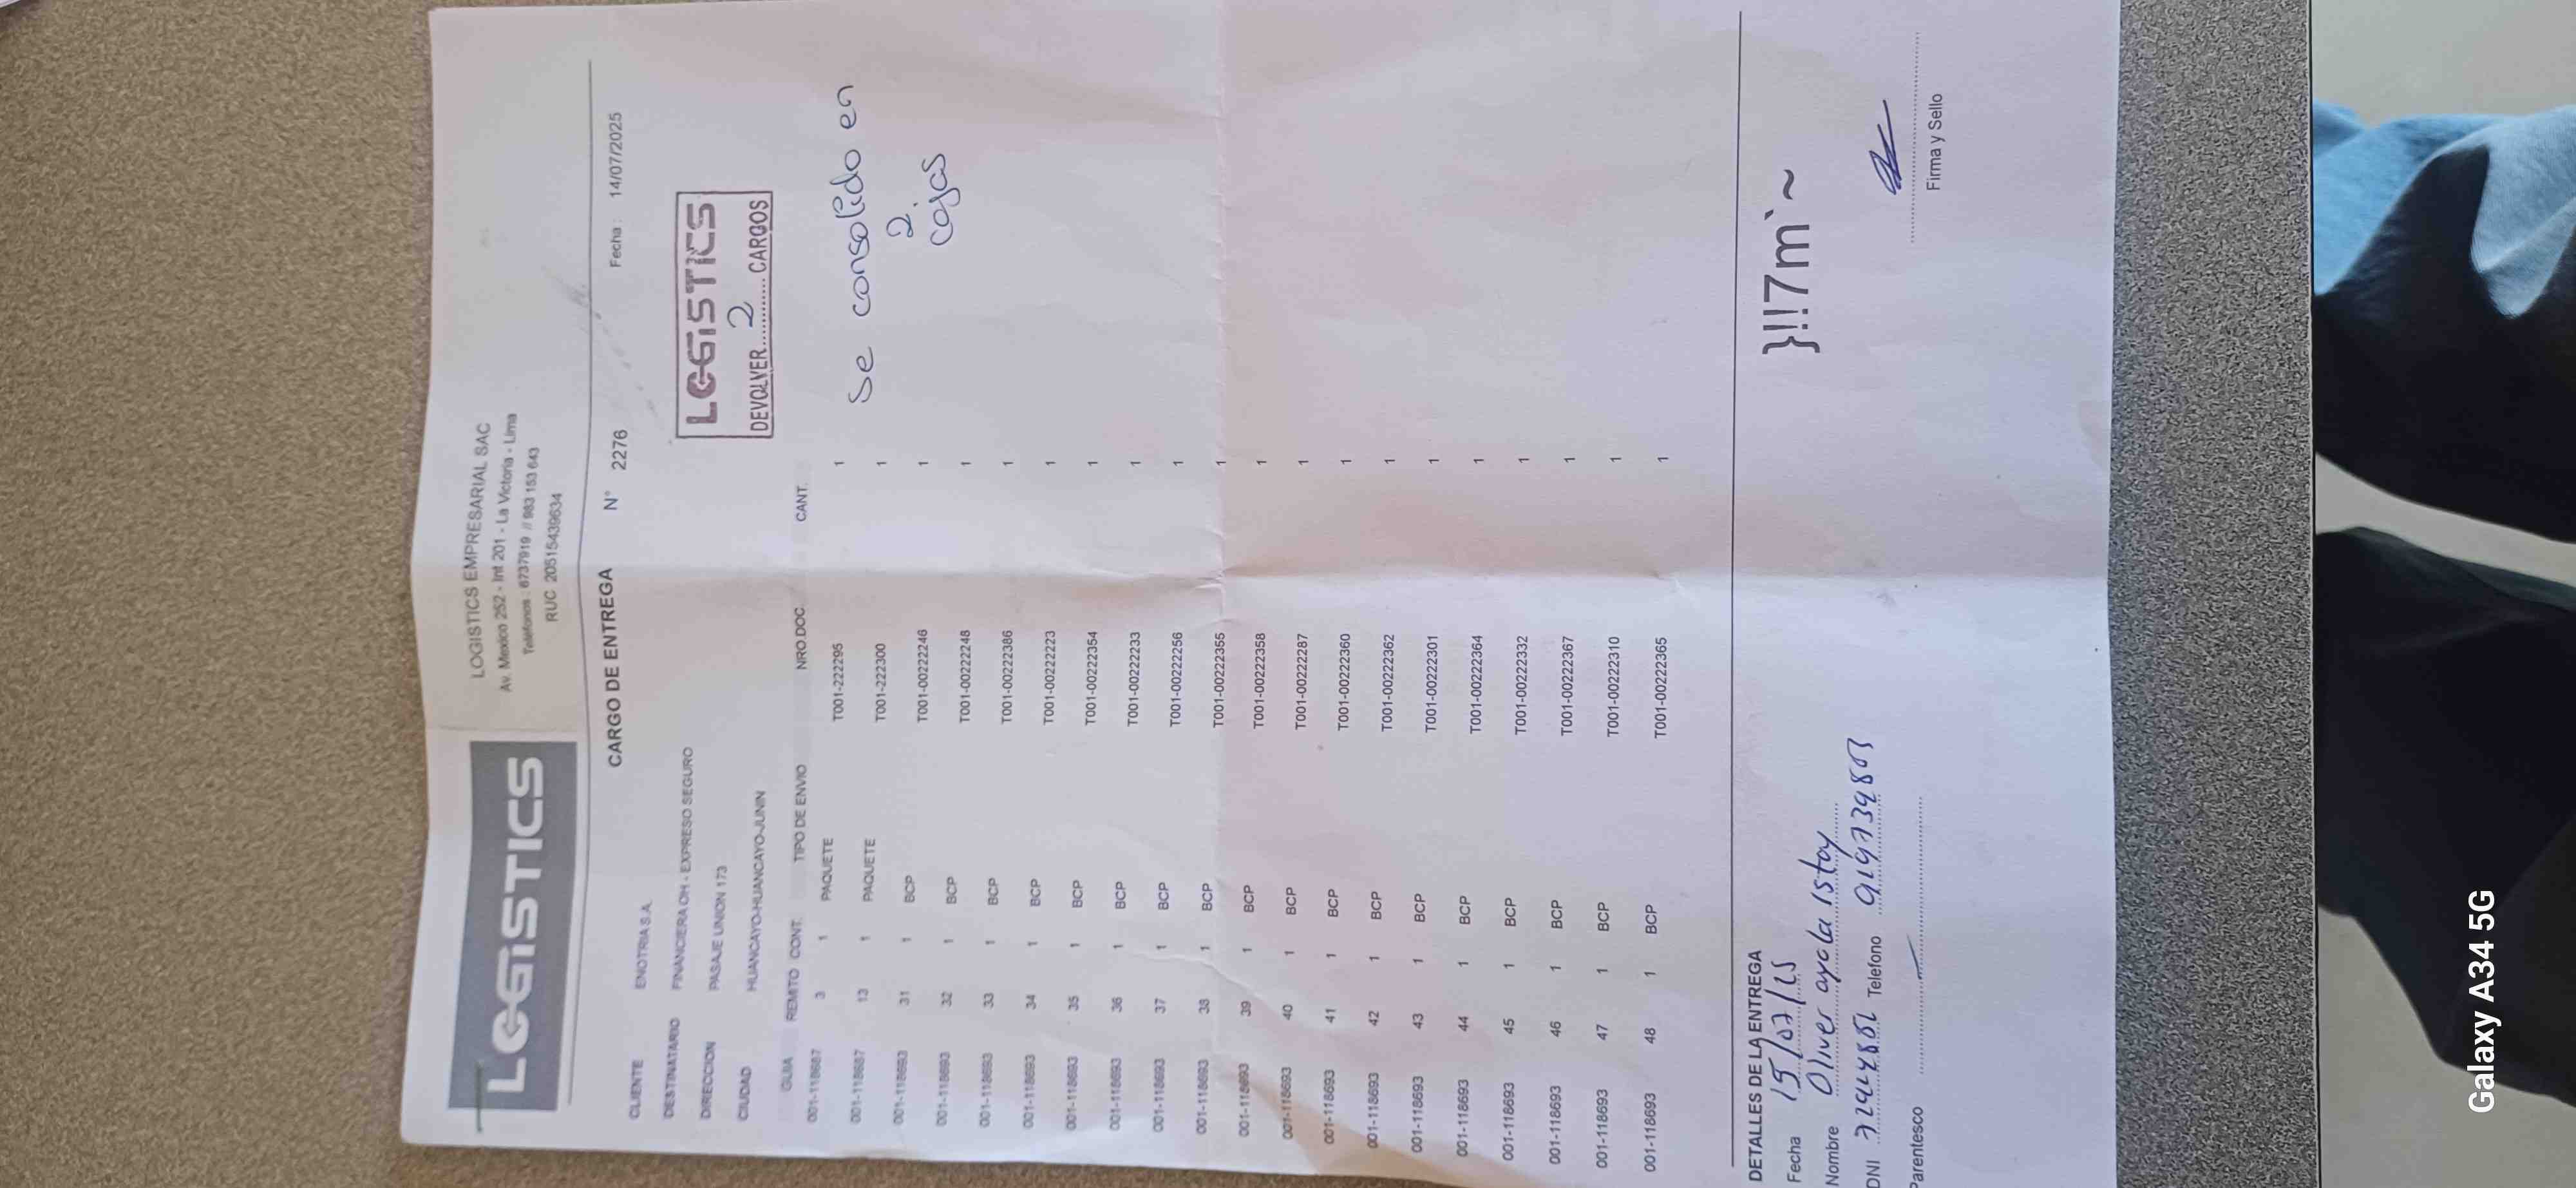 LOGISTICS
LOGISTICS EMPRESARIAL SAC
Av. Mexico 252 - Int 201 - La Victoria - Lima
Telefonos : 6737919 // 983 153 643
RUC 20515439634
CARGO DE ENTREGA N° 2276 Fecha : 14/07/2025
CLIENTE ENOTRIA S.A.
DESTINATARIO FINANCIERA OH - EXPRESO SEGURO
DIRECCION PASAJE UNION 173
CIUDAD HUANCAYO-HUANCAYO-JUNIN
LOGISTICS
DEVOLVER 2 CARGOS
GUIA REMITO CONT. TIPO DE ENVIO NRO DOC. CANT.
001-118687 3 1 PAQUETE T001-222295 1
001-118687 13 1 PAQUETE T001-222300 1
001-118693 31 1 BCP T001-00222246 1
001-118693 32 1 BCP T001-00222248 1
001-118693 33 1 BCP T001-00222386 1
001-118693 34 1 BCP T001-00222223 1
001-118693 35 1 BCP T001-00222354 1
001-118693 36 1 BCP T001-00222233 1
001-118693 37 1 BCP T001-00222256 1
001-118693 38 1 BCP T001-00222355 1
001-118693 39 1 BCP T001-00222358 1
001-118693 40 1 BCP T001-00222287 1
001-118693 41 1 BCP T001-00222360 1
001-118693 42 1 BCP T001-00222362 1
001-118693 43 1 BCP T001-00222301 1
001-118693 44 1 BCP T001-00222364 1
001-118693 45 1 BCP T001-00222332 1
001-118693 46 1 BCP T001-00222367 1
001-118693 47 1 BCP T001-00222310 1
001-118693 48 1 BCP T001-00222365 1
Se consolido en
2
cajas
DETALLES DE LA ENTREGA
}!!7m`~
Fecha 15/07/25
Nombre Oliver ayala Istoy
DNI Telefono
Parentesco
Firma y Sello
Galaxy A34 5G